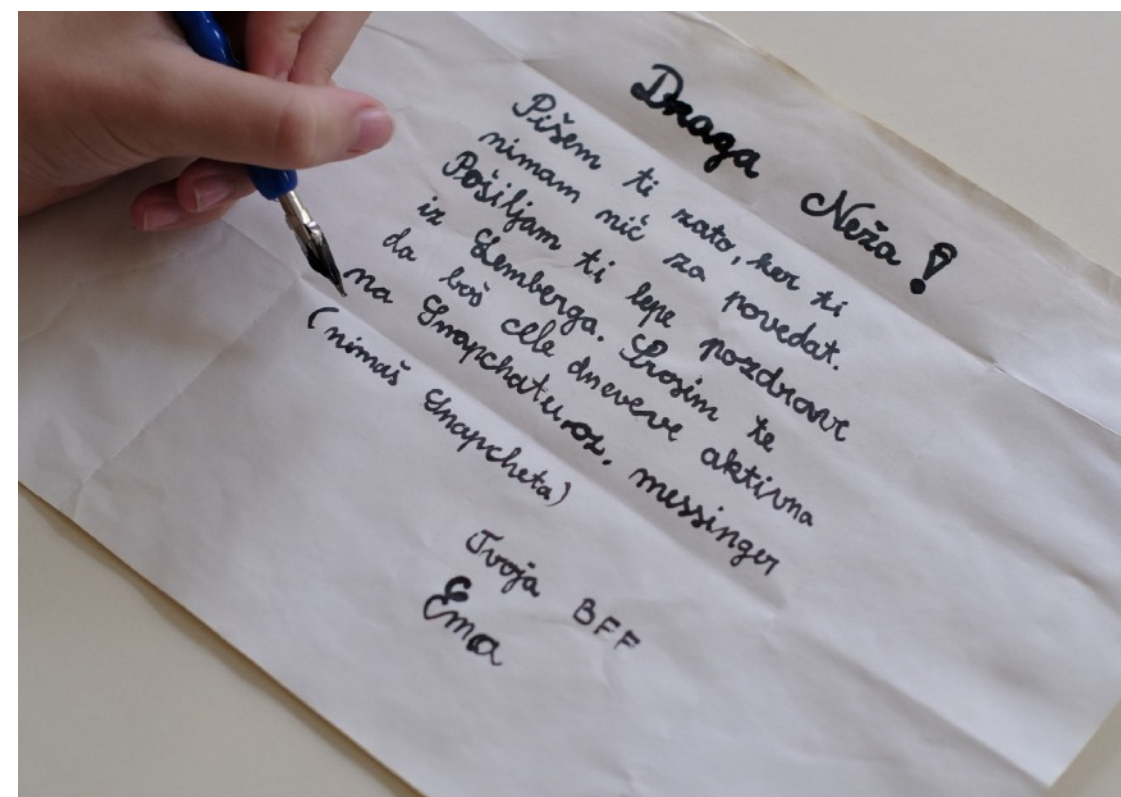 Draga Neža!
Pišem ti zato, ker ti
nimam nič za povedat.
Pošiljam ti lepe pozdrave
iz Lemberga. Prosim te
da boš cele dneveve aktivna
na Snapchatu oz. messinger
(nimaš Snapcheta)
Tvoja BFF
Ema